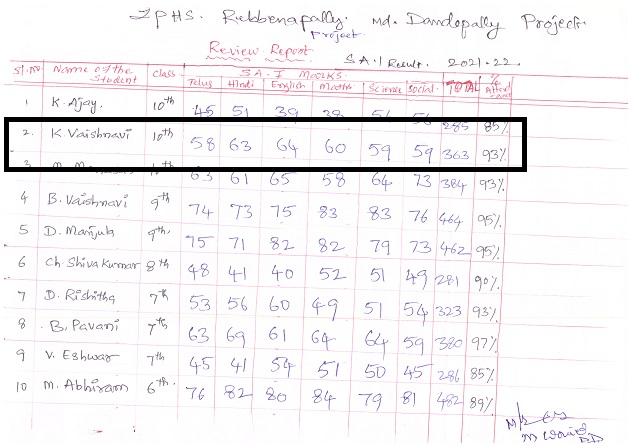 ZPHS. Rebbenapally. Md. Dandepally Project.
Project
Review Report
S.A.1 Result. 2021-22.
S.A.I Marks.
Sl.No Name of the Student Class Telugu Hindi English Maths Science Social TOTAL %
1 K. Ajay. 10th 45 51 39 285 85%
2. K. Vaishnavi 10th 58 63 64 60 59 59 363 93%
3 63 61 65 58 64 73 384 93%
4 B. Vaishnavi 9th 74 73 75 83 83 76 464 95%
5 D. Manjula 9th 75 71 82 82 79 73 462 95%
6 Ch. Shiva Kumar 8th 48 41 40 52 51 49 281 90%
7 D. Rishitha 7th 53 56 60 49 51 54 323 93%
8 B. Pavani 7th 63 69 61 64 64 59 380 97%
9 V. Eshwar 7th 45 41 54 51 50 45 286 85%
10 M. Abhiram 6th 76 82 80 84 79 81 482 89%